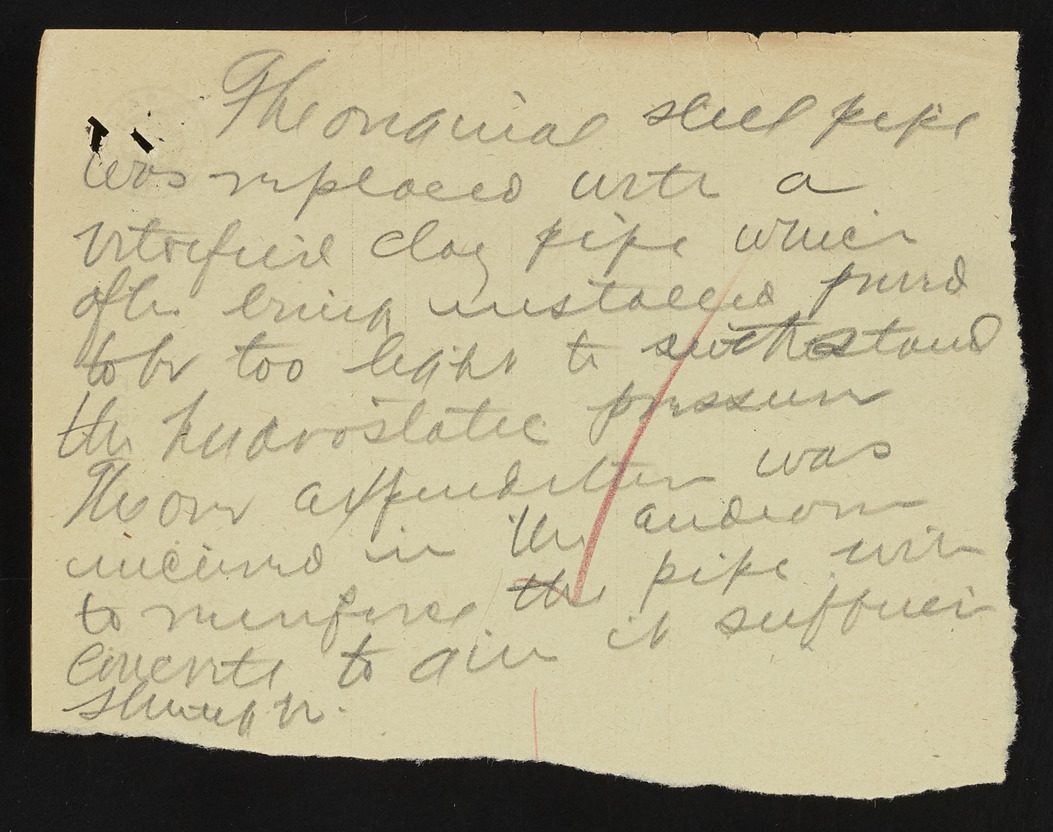 The original steel pipe
was replaced with a
vitrified clay pipe which
after being installed proved
to be too light to withstand
the hydrostatic pressure
The over expenditure was
incurred in the endeavor
to reinforce the pipe with
concrete to give it sufficient
strength.